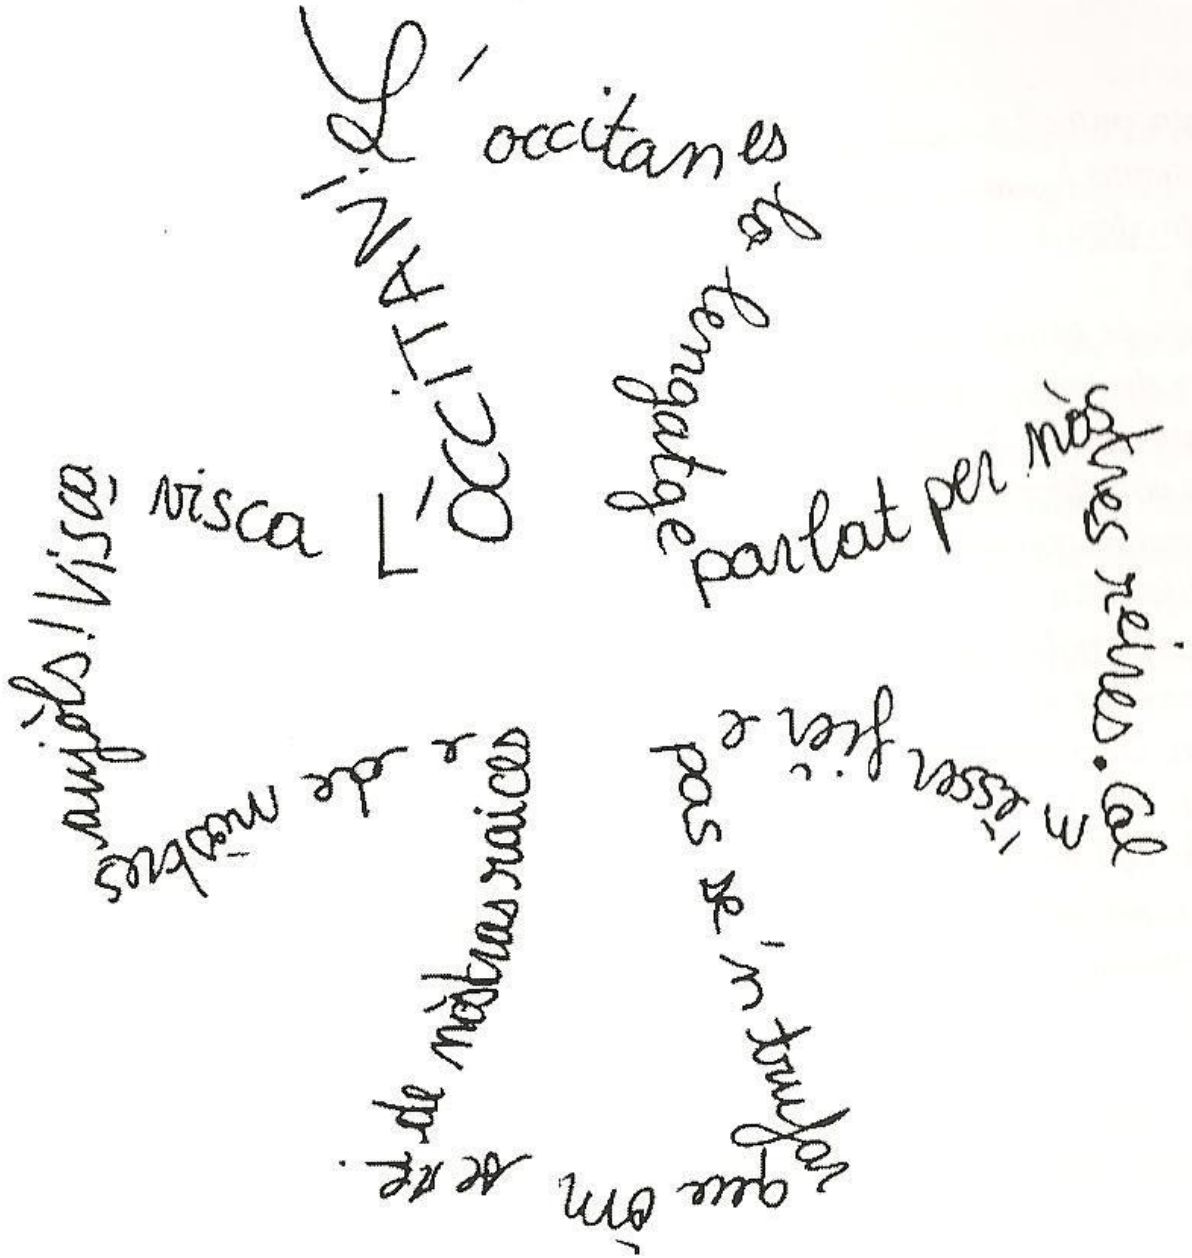 L'occitan es
la lengatge
parlat per nòs
tres reires. Cal
n'èsser fièr e
pas se'n trufar
que òm se
de nòstras raices
e de nòstres
aujòls! Visca,
visca L'
OCCITANI